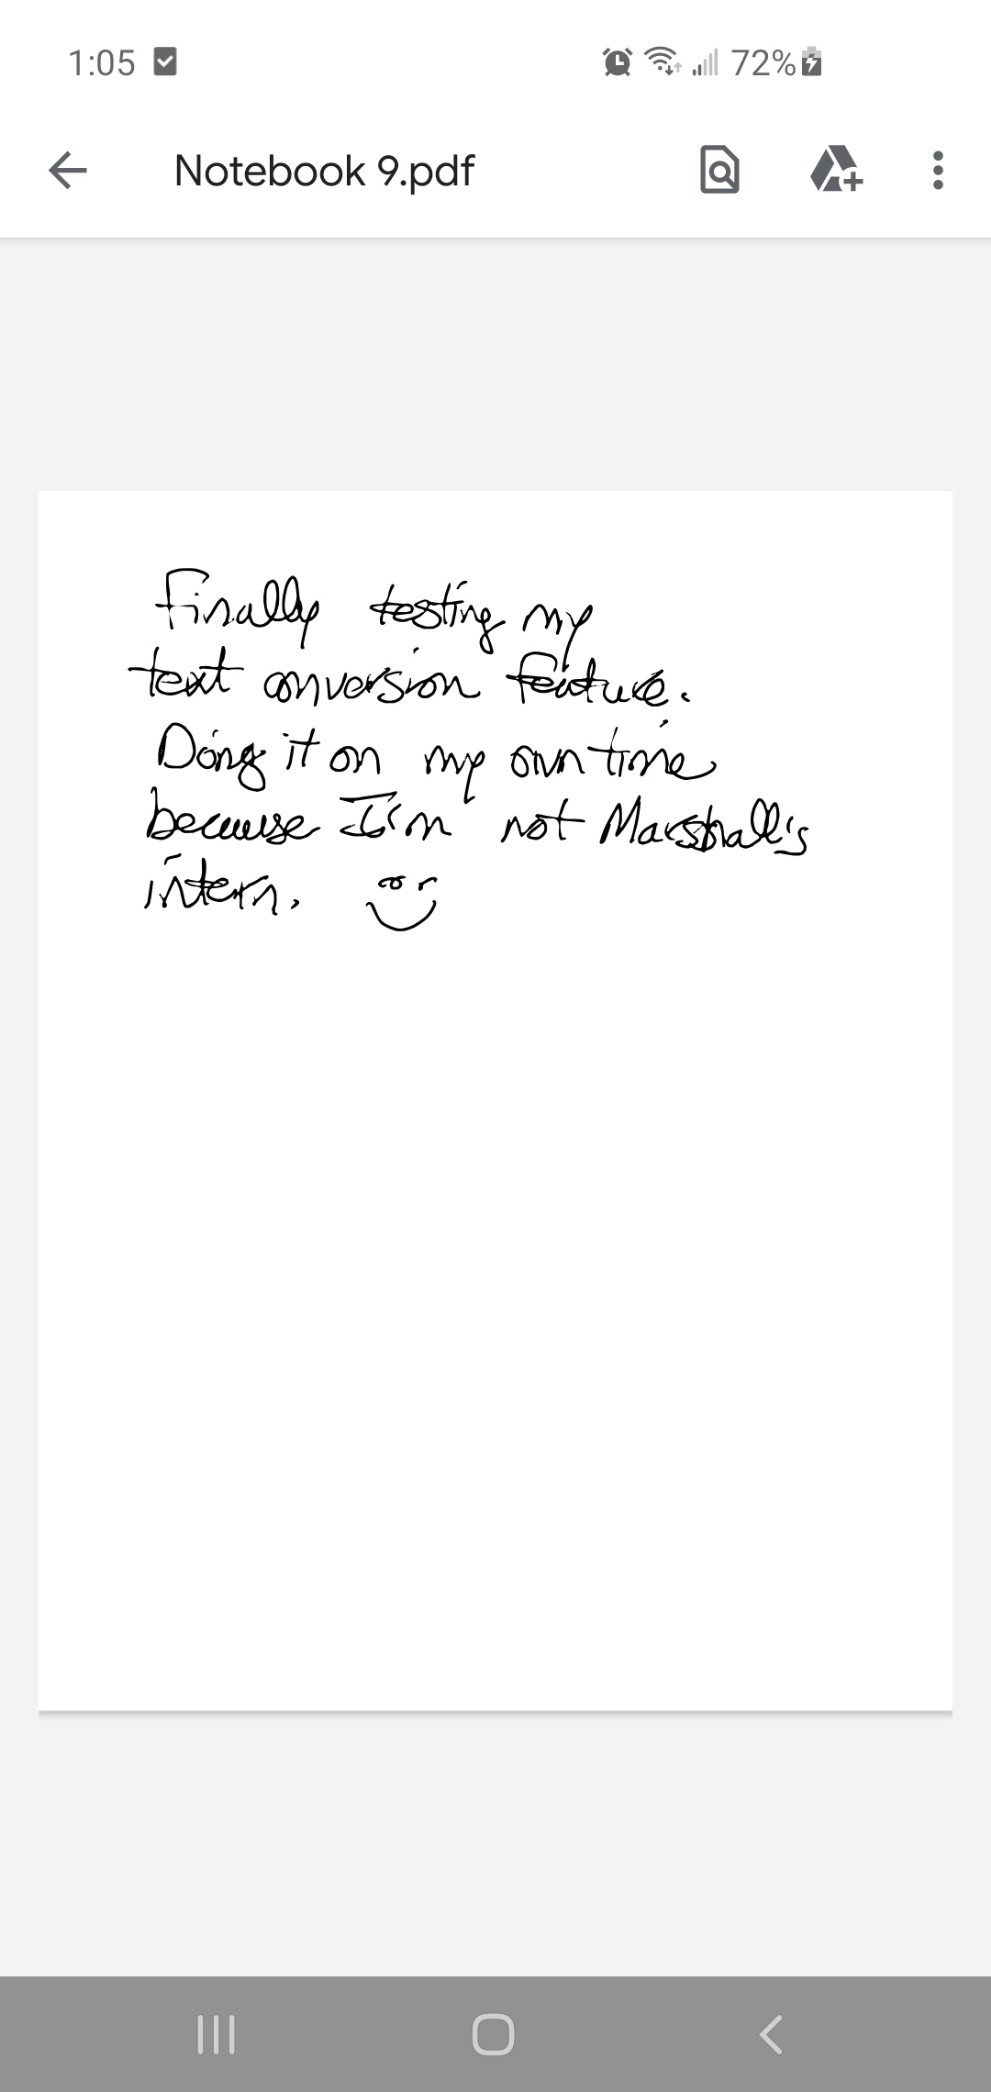 1:05 72%
Notebook 9.pdf
Finally testing my
text conversion feature.
Doing it on my own time
because I'm not Marshall's
intern.